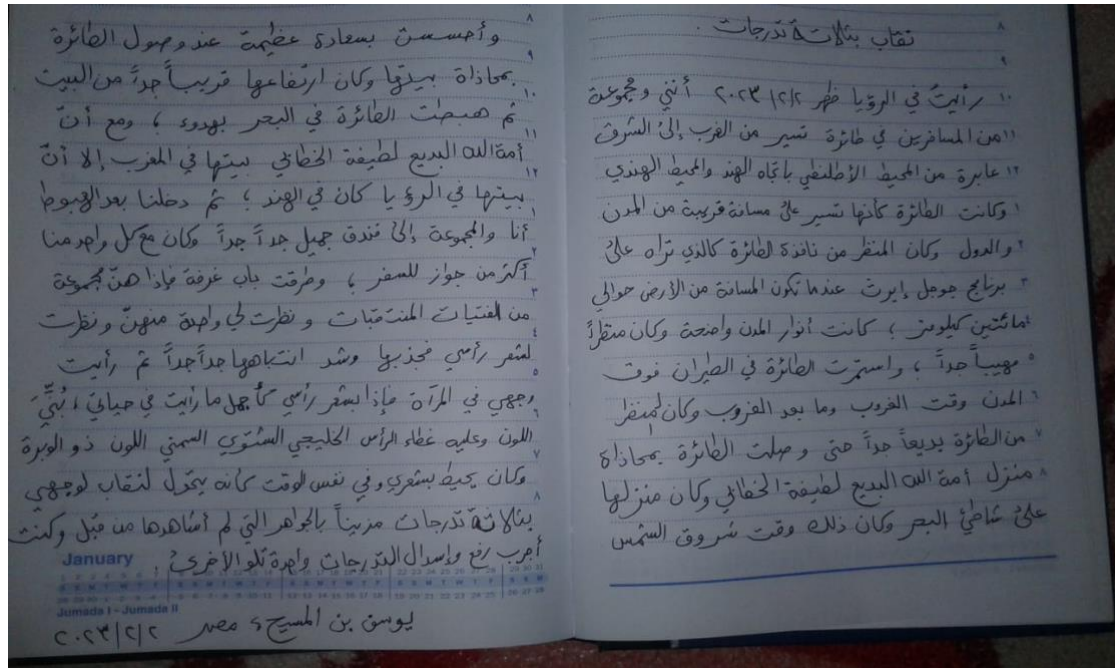 نقاب بثلاثة تدرجات .
رأيتُ في الرؤيا ظهر ٢/٢/٢٠٢٣ أنني ومجموعة
من المسافرين في طائرة تسير من الغرب إلى الشرق
عابرة من المحيط الأطلنطي باتجاه الهند والمحيط الهندي
وكانت الطائرة كأنها تسير على مسافة قريبة من المدن
والدول وكان المنظر من نافذة الطائرة كالذي تراه على
برنامج جوجل إيرث عندما تكون المسافة من الأرض حوالي
مائتين كيلومتر ؛ كانت أنوار المدن واضحة وكان منظراً
مهيباً جداً ، واستمرت الطائرة في الطيران فوق
المدن وقت الغروب وما بعد الغروب وكان المنظر
من الطائرة بديعاً جداً حتى وصلت الطائرة بمحاذاة
منزل أمة الله البديع لطيفة الخطابي وكان منزلها
على شاطئ البحر وكان ذلك وقت شروق الشمس
وأحسست بسعادة عظيمة عند وصول الطائرة
بمحاذاة بيتها وكان ارتفاعها قريباً جداً من البيت
ثم هبطت الطائرة في البحر بهدوء ؛ ومع أنّ
أمة الله البديع لطيفة الخطابي بيتها في المغرب إلا أنّ
بيتها في الرؤيا كان في الهند ؛ ثم دخلنا بعد الهبوط
أنا والمجموعة إلى فندق جميل جداً جداً وكان مع كل واحد منا
أكثر من جواز للسفر ، وطرقت باب غرفة فإذا هنّ مجموعة
من الفتيات المنتقبات و نظرت لي واحدة منهنّ ونظرت
لشعر رأسي فجذبها وشد انتباهها جداً جداً ثم رأيت
وجهي في المرآة فإذا بشعر رأسي كأجمل ما رأيت في حياتي ، بُنِّيَّ
اللون وعليه غطاء الرأس الخليجي الشتوي السمني اللون ذو الوبرة
وكان يحيط بشعري وفي نفس الوقت كأنه يتحول لنقاب لوجهي
بثلاثة تدرجات مزيناً بالجواهر التي لم أشاهدها من قبل وكنت
أجرب رفع وإسدال التدرجات واحدة تلو الأخرى .
January
Jumada I - Jumada II
يوسف بن المسيح ، مصر ٢/٢/٢٠٢٣